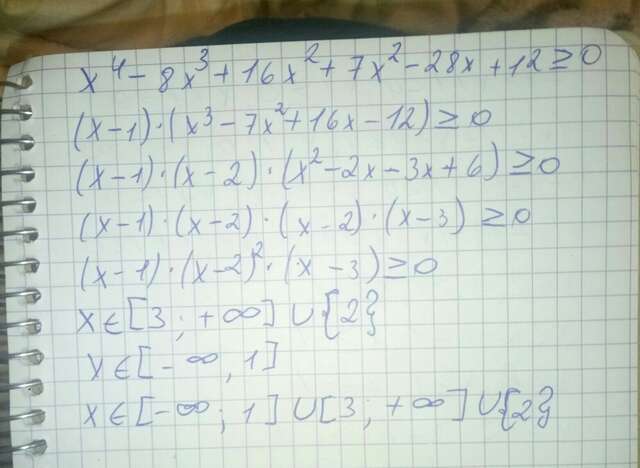 x⁴ - 8x³ + 16x² + 7x² - 28x + 12 ≥ 0
(x-1)·(x³ - 7x² + 16x - 12) ≥ 0
(x-1)·(x-2)·(x² - 2x - 3x + 6) ≥ 0
(x-1)·(x-2)·(x-2)·(x-3) ≥ 0
(x-1)·(x-2)²·(x-3) ≥ 0
x ∈ [3; +∞] ∪ {2}
x ∈ [-∞, 1]
x ∈ [-∞; 1] ∪ [3; +∞] ∪ {2}